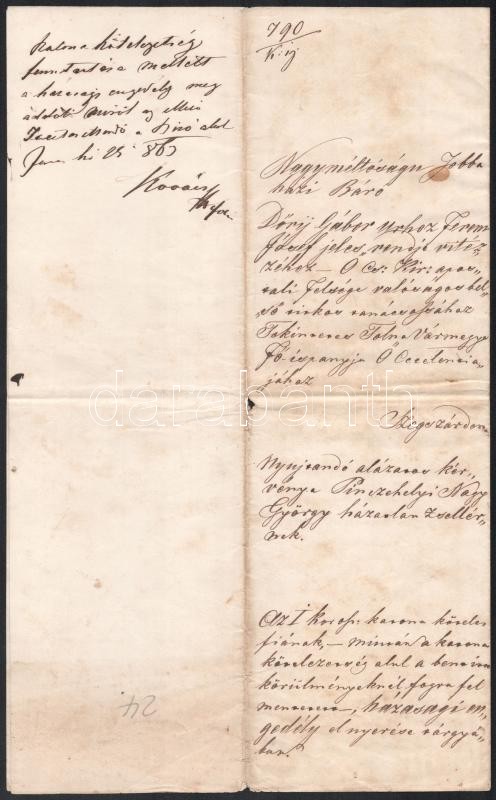 Katona kötelezettség
fenntartása mellett
a házassági engedély meg
adatott
Kovács
790
Nagyméltóságu Jobba
házi Báró
Dőry Gábor Urhoz Ferencz
Jósef jeles rendje vité-
zéhez – Ő Cs: Kir: apos-
toli Felsége valóságos bel-
ső titkos tanácsossához
Tekintetes Tolna Vármegye
Fő-ispányja Ő Excelentia-
jához
Szegszárdon
Nyujtandó alázatos kér-
vénye Pinczehelyi Nagy
György házatlan zsellér-
nek.
Az I korosz: katona köteles
fiának, – miután a katona
kötelezettség alul a bennirt
körülményeknél fogva fel
mentetett, házasági en-
gedély elnyerése tárgyá-
ban.
24.
darabanth